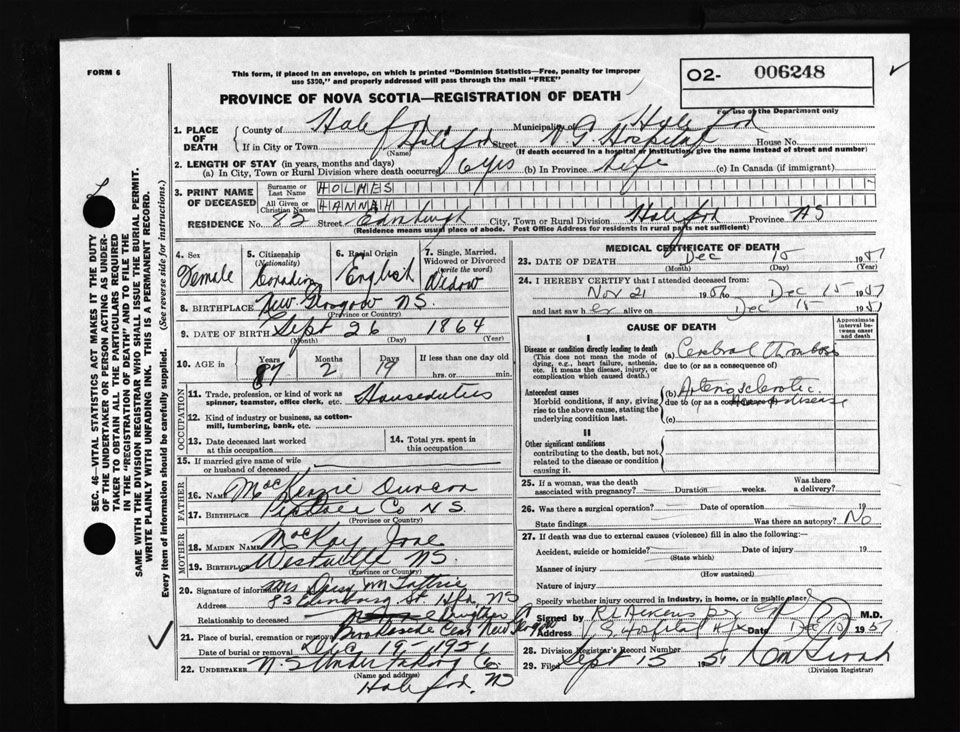 FORM 6
This form, if placed in an envelope, on which is printed "Dominion Statistics—Free, penalty for improper
use $300," and properly addressed will pass through the mail "FREE"
O2- 006248
For use of the Department only
PROVINCE OF NOVA SCOTIA—REGISTRATION OF DEATH
1. PLACE OF DEATH
County of Halifax Municipality of Halifax
If in City or Town Halifax Street V G Hospital House No.
(Name) (If death occurred in a hospital or institution, give the name instead of street and number)
2. LENGTH OF STAY (in years, months and days)
(a) In City, Town or Rural Division where death occurred 6 yrs (b) In Province Life (c) In Canada (if immigrant)
3. PRINT NAME OF DECEASED
Surname or Last Name HOLMES
All Given or Christian Names HANNAH
RESIDENCE No. 82 Street Edinburgh City, Town or Rural Division Halifax Province NS
(Residence means usual place of abode. Post Office Address for residents in rural parts not sufficient)
4. Sex Female
5. Citizenship (Nationality) Canadian
6. Racial Origin English
7. Single, Married, Widowed or Divorced (write the word) Widow
8. BIRTHPLACE New Glasgow NS.
(Province or Country)
9. DATE OF BIRTH Sept 26 1864
(Month) (Day) (Year)
10. AGE in Years 87 Months 2 Days 19 If less than one day old
hrs. or min.
OCCUPATION
11. Trade, profession, or kind of work as spinner, teamster, office clerk, etc. Houseduties
12. Kind of industry or business, as cotton-mill, lumbering, bank, etc.
13. Date deceased last worked at this occupation
14. Total yrs. spent in this occupation
15. If married give name of wife or husband of deceased
FATHER
16. NAME MacKenzie Duncan
17. BIRTHPLACE Pictou Co NS.
(Province or Country)
MOTHER
18. MAIDEN NAME MacKay Jane
19. BIRTHPLACE Westville NS.
(Province or Country)
20. Signature of informant Mrs Daisy M
Address 83 St Hfx NS
Relationship to deceased
21. Place of burial, cremation or removal Brookside Cem New Glasgow
Date of burial or removal Dec 19-1951
22. UNDERTAKER N-S Undertaking Co.
(Name and address)
Halifax, NS
MEDICAL CERTIFICATE OF DEATH
23. DATE OF DEATH Dec 15 1951
(Month) (Day) (Year)
24. I HEREBY CERTIFY that I attended deceased from:
Nov 21 1951 to Dec 15 1951
and last saw her alive on Dec 15 1951
CAUSE OF DEATH
Approximate interval between onset and death
I
Disease or condition directly leading to death
(This does not mean the mode of dying, e.g., heart failure, asthenia, etc. It means the disease, injury, or complication which caused death.)
(a) Cerebral thrombosis
due to (or as a consequence of)
Antecedent causes
Morbid conditions, if any, giving rise to the above cause, stating the underlying condition last.
(b) Arteriosclerotic
due to (or as a consequence of) heart disease
(c)
II
Other significant conditions
contributing to the death, but not related to the disease or condition causing it.
25. If a woman, was the death associated with pregnancy? Duration weeks. Was there a delivery?
26. Was there a surgical operation? Date of operation 19
State findings Was there an autopsy? No
27. If death was due to external causes (violence) fill in also the following:—
Accident, suicide or homicide? Date of injury 19
(State which)
Manner of injury
(How sustained)
Nature of injury
Specify whether injury occurred in industry, in home, or in public place
Signed by M.D.
Address V G Hospital Hfx Date Dec 1951
28. Division Registrar's Record Number
29. Filed Sept 15 1951
(Division Registrar)
SEC. 46—VITAL STATISTICS ACT MAKES IT THE DUTY
OF THE UNDERTAKER OR PERSON ACTING AS UNDER-
TAKER TO OBTAIN ALL THE PARTICULARS REQUIRED
IN THE "REGISTRATION OF DEATH" AND TO FILE THE
SAME WITH THE DIVISION REGISTRAR WHO SHALL ISSUE THE BURIAL PERMIT.
WRITE PLAINLY WITH UNFADING INK. THIS IS A PERMANENT RECORD.
Every item of information should be carefully supplied. (See reverse side for instructions.)